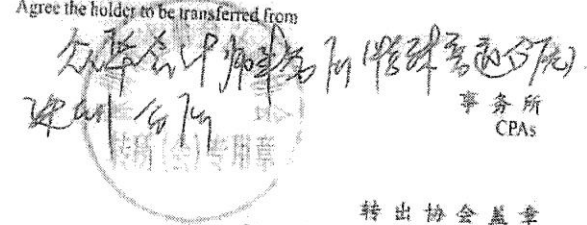 Agree the holder to be transferred from
众华会计师事务所(特殊普通合伙)
深圳分所
事务所
CPAs
转所(会)专用章
转出协会盖章